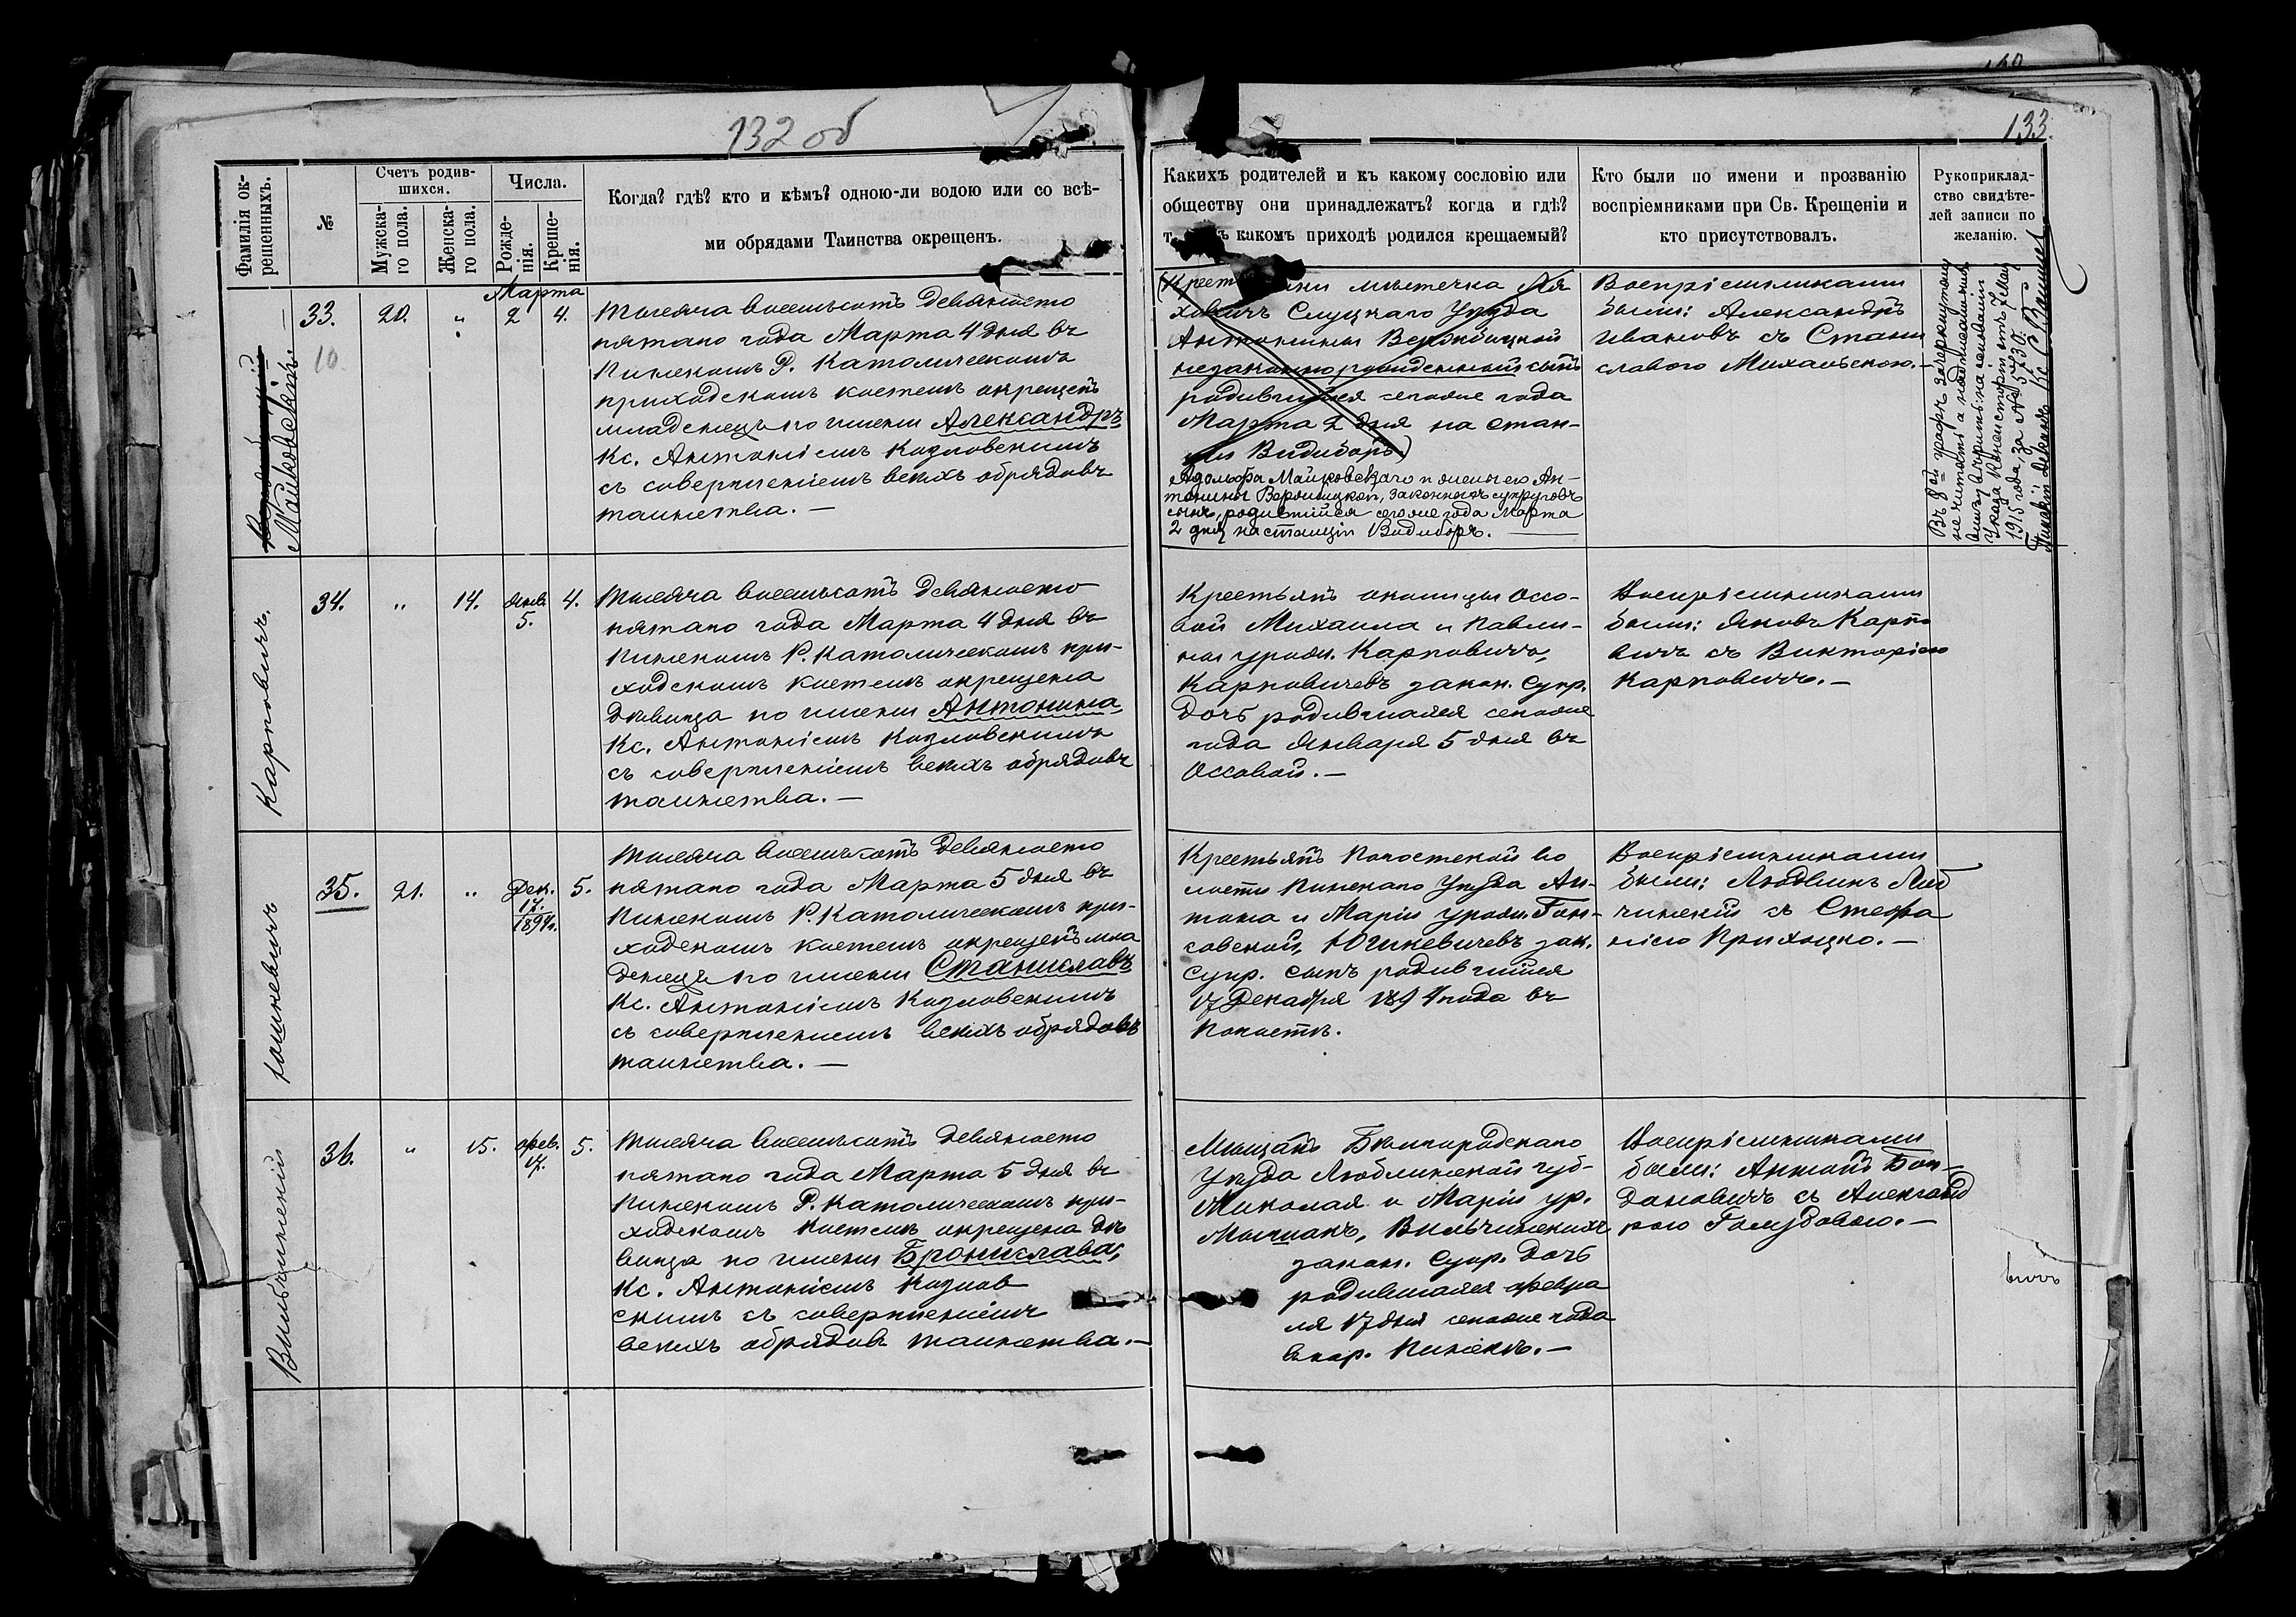 132 об
133.
Фамилія ок-
рещенныхъ.
№
Счетъ родив-
шихся.
Мужска-
го пола.
Женска-
го пола.
Числа.
Рожде-
нія.
Креще-
нія.
Когда? гдѣ? кто и кѣмъ? одною-ли водою или со всѣ-
ми обрядами Таинства окрещенъ.
Какихъ родителей и къ какому сословію или
обществу они принадлежатъ? когда и гдѣ?
какомъ приходѣ родился крещаемый?
Кто были по имени и прозванію
воспріемниками при Св. Крещеніи и
кто присутствовалъ.
Рукоприклад-
ство свидѣте-
лей записи по
желанію.
Майковскій
33.
10
20.
"
Марта
2
4.
Тысяча восемьсотъ девяносто
пятаго года Марта 4 дня въ
Пинскомъ Р. Католическомъ
приходскомъ костелѣ окрещенъ
младенецъ по имени Александръ
Кс. Антоніемъ Козловскимъ
съ совершеніемъ всѣхъ обрядовъ
таинства. —
мѣстечка Ля
ховичъ Слуцкаго Уѣзда
Антонины Вербицкой
незаконнорожденный сынъ
родившійся сегоже года
Марта 2 дня на стан-
ціи Видиборъ)
Адольфа Майковскаго и жены его Ан-
тонины Вербицкой, законныхъ супруговъ
сынъ, родившійся сегоже года Марта
2 дня на станціи Видиборъ. —
Воспріемниками
были: Александръ
Ивановъ съ Стани
славою Михальскою. —
Въ 8ой графѣ зачеркнутому
не читать а надписанному
внизу вѣрить: на основаніи
Указа Консисторіи отъ 7 Мая
1915 года, за № 5730.
Пинскій Деканъ Кс.
Карповичъ.
34.
"
14.
Янв.
5.
4.
Тысяча восемьсотъ девяносто
пятаго года Марта 4 дня въ
Пинскомъ Р. Католическомъ при-
ходскомъ костелѣ окрещена
дѣвица по имени Антонина
Кс. Антоніемъ Козловскимъ
съ совершеніемъ всѣхъ обрядовъ
таинства. —
Крестьянъ околицы Оссо-
вой Михаила и Павли-
ны урожд. Карповичъ,
Карповичевъ закон. супр.
дочь родившаяся сегоже
года Января 5 дня въ
Оссовой. —
Воспріемниками
были: Яковъ Карпо
вичъ съ Викторіею
Карповичъ. —
Юшкевичъ
35.
21.
"
Дек.
17.
1894г.
5.
Тысяча восемьсотъ девяносто
пятаго года Марта 5 дня въ
Пинскомъ Р. Католическомъ при-
ходскомъ костелѣ окрещенъ мла
денецъ по имени Станиславъ
Кс. Антоніемъ Козловскимъ
съ совершеніемъ всѣхъ обрядовъ
таинства. —
Крестьянъ Погостской во
лости Пинскаго Уѣзда Ан-
тона и Маріи урожд. Гон-
совской, Юшкевичевъ зак.
супр. сынъ родившійся
17 Декабря 1894 года въ
Погостѣ.
Воспріемниками
были: Людвикъ
съ Стефа
ніею Прихоцко. —
Вильчинскій
36.
"
15.
Фев.
17.
5.
Тысяча восемьсотъ девяносто
пятаго года Марта 5 дня въ
Пинскомъ Р. Католическомъ при-
ходскомъ костелѣ окрещена дѣ
вица по имени Брониславa,
Кс. Антоніемъ Козлов
скимъ съ совершеніемъ
всѣхъ обрядовъ таинства. —
Мѣщанъ Бѣлгородскаго
Уѣзда Люблинской губ-
Николая и Маріи ур.
Вильчинскихъ
закон. супр. дочь
родившаяся Февра
ля 17 дня сегоже года
въ гор. Пинскѣ. —
Воспріемниками
были: Антонъ Бог-
дановичъ съ Александ
рою Голубовою. —
вичъ